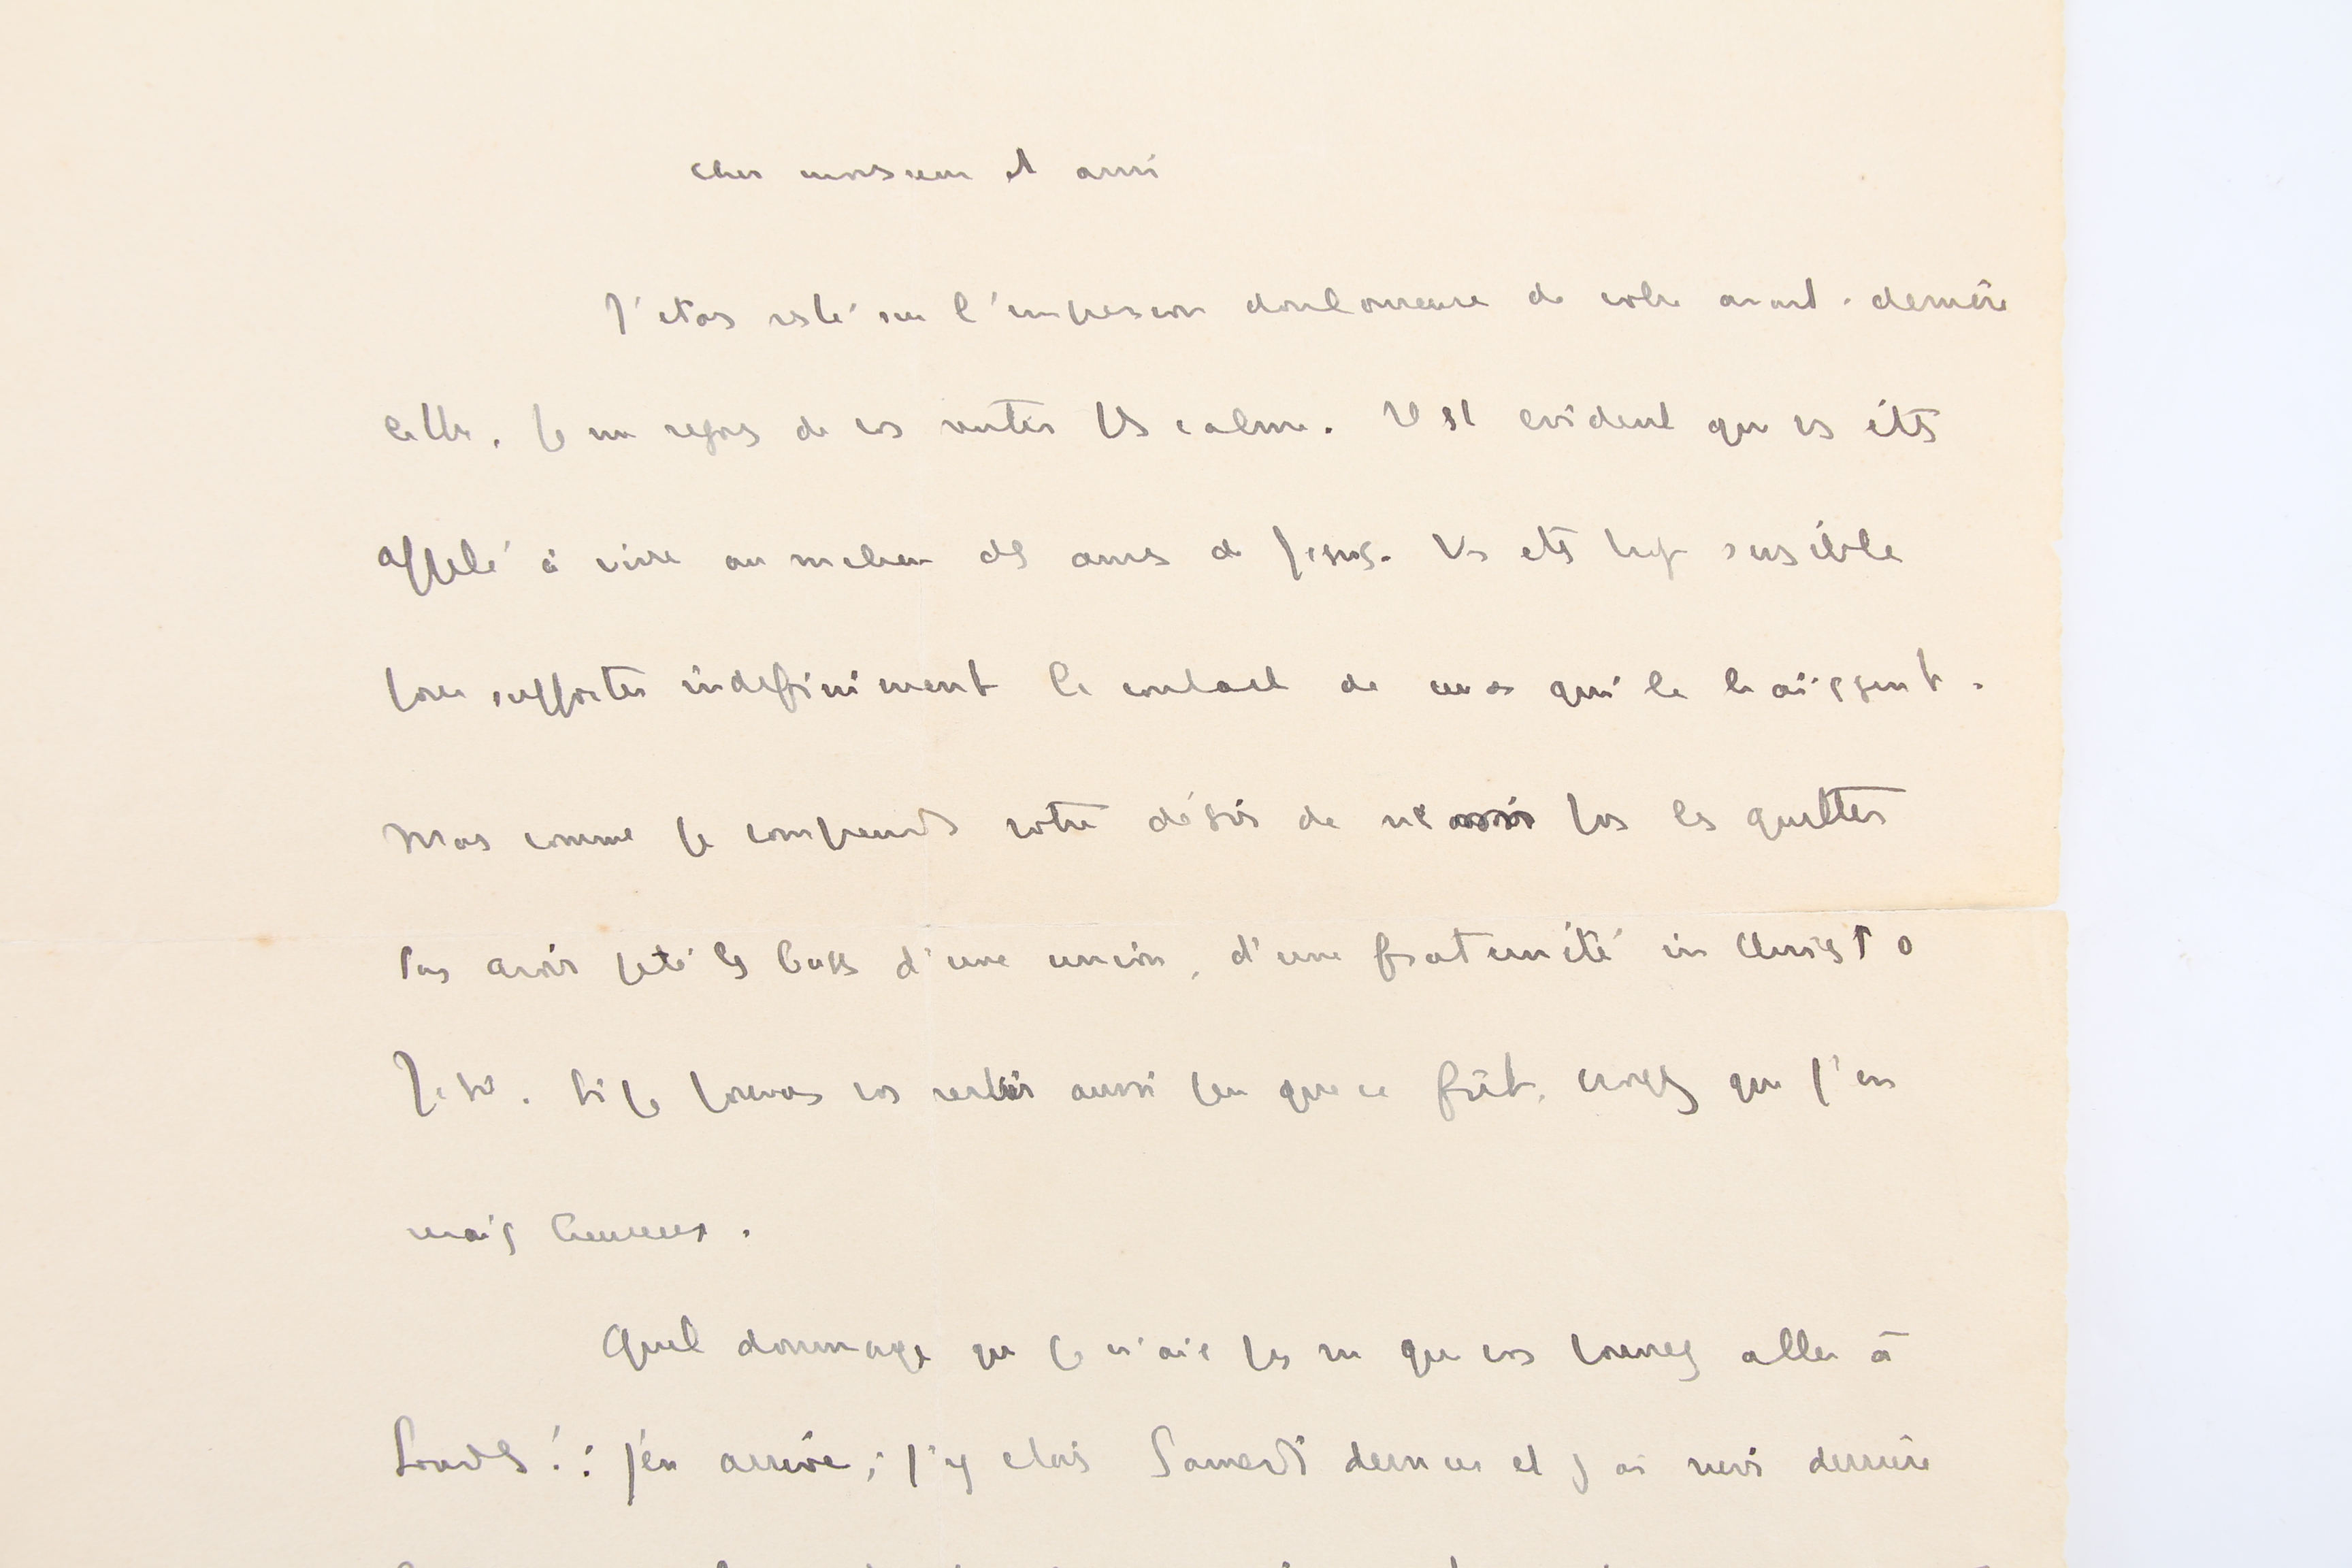 cher monsieur et ami
J'étais resté sur l'impression douloureuse de votre avant-dernière
lettre. Je me rejouis de vs sentir plus calme. Il est evident que vs êtes
appelé à vivre au milieu des ames de Jésus. Vs etes trop sensible
pour supporter indefiniment le contact de ceux qui le haïssent.
Mais comme je comprends votre désir de ne pas les quitter
sans avoir jeté les bases d'une union, d'une fraternité in Christo
Jesu. Si je pouvais vos servir aussi peu que ce fût, croyez que j'en
serais heureux.
Quel dommage que je n'aie pas su que vos pouviez aller à
Lourdes !: j'en arrive ; j'y etais Samedi dernier et j'ai suivi derrière